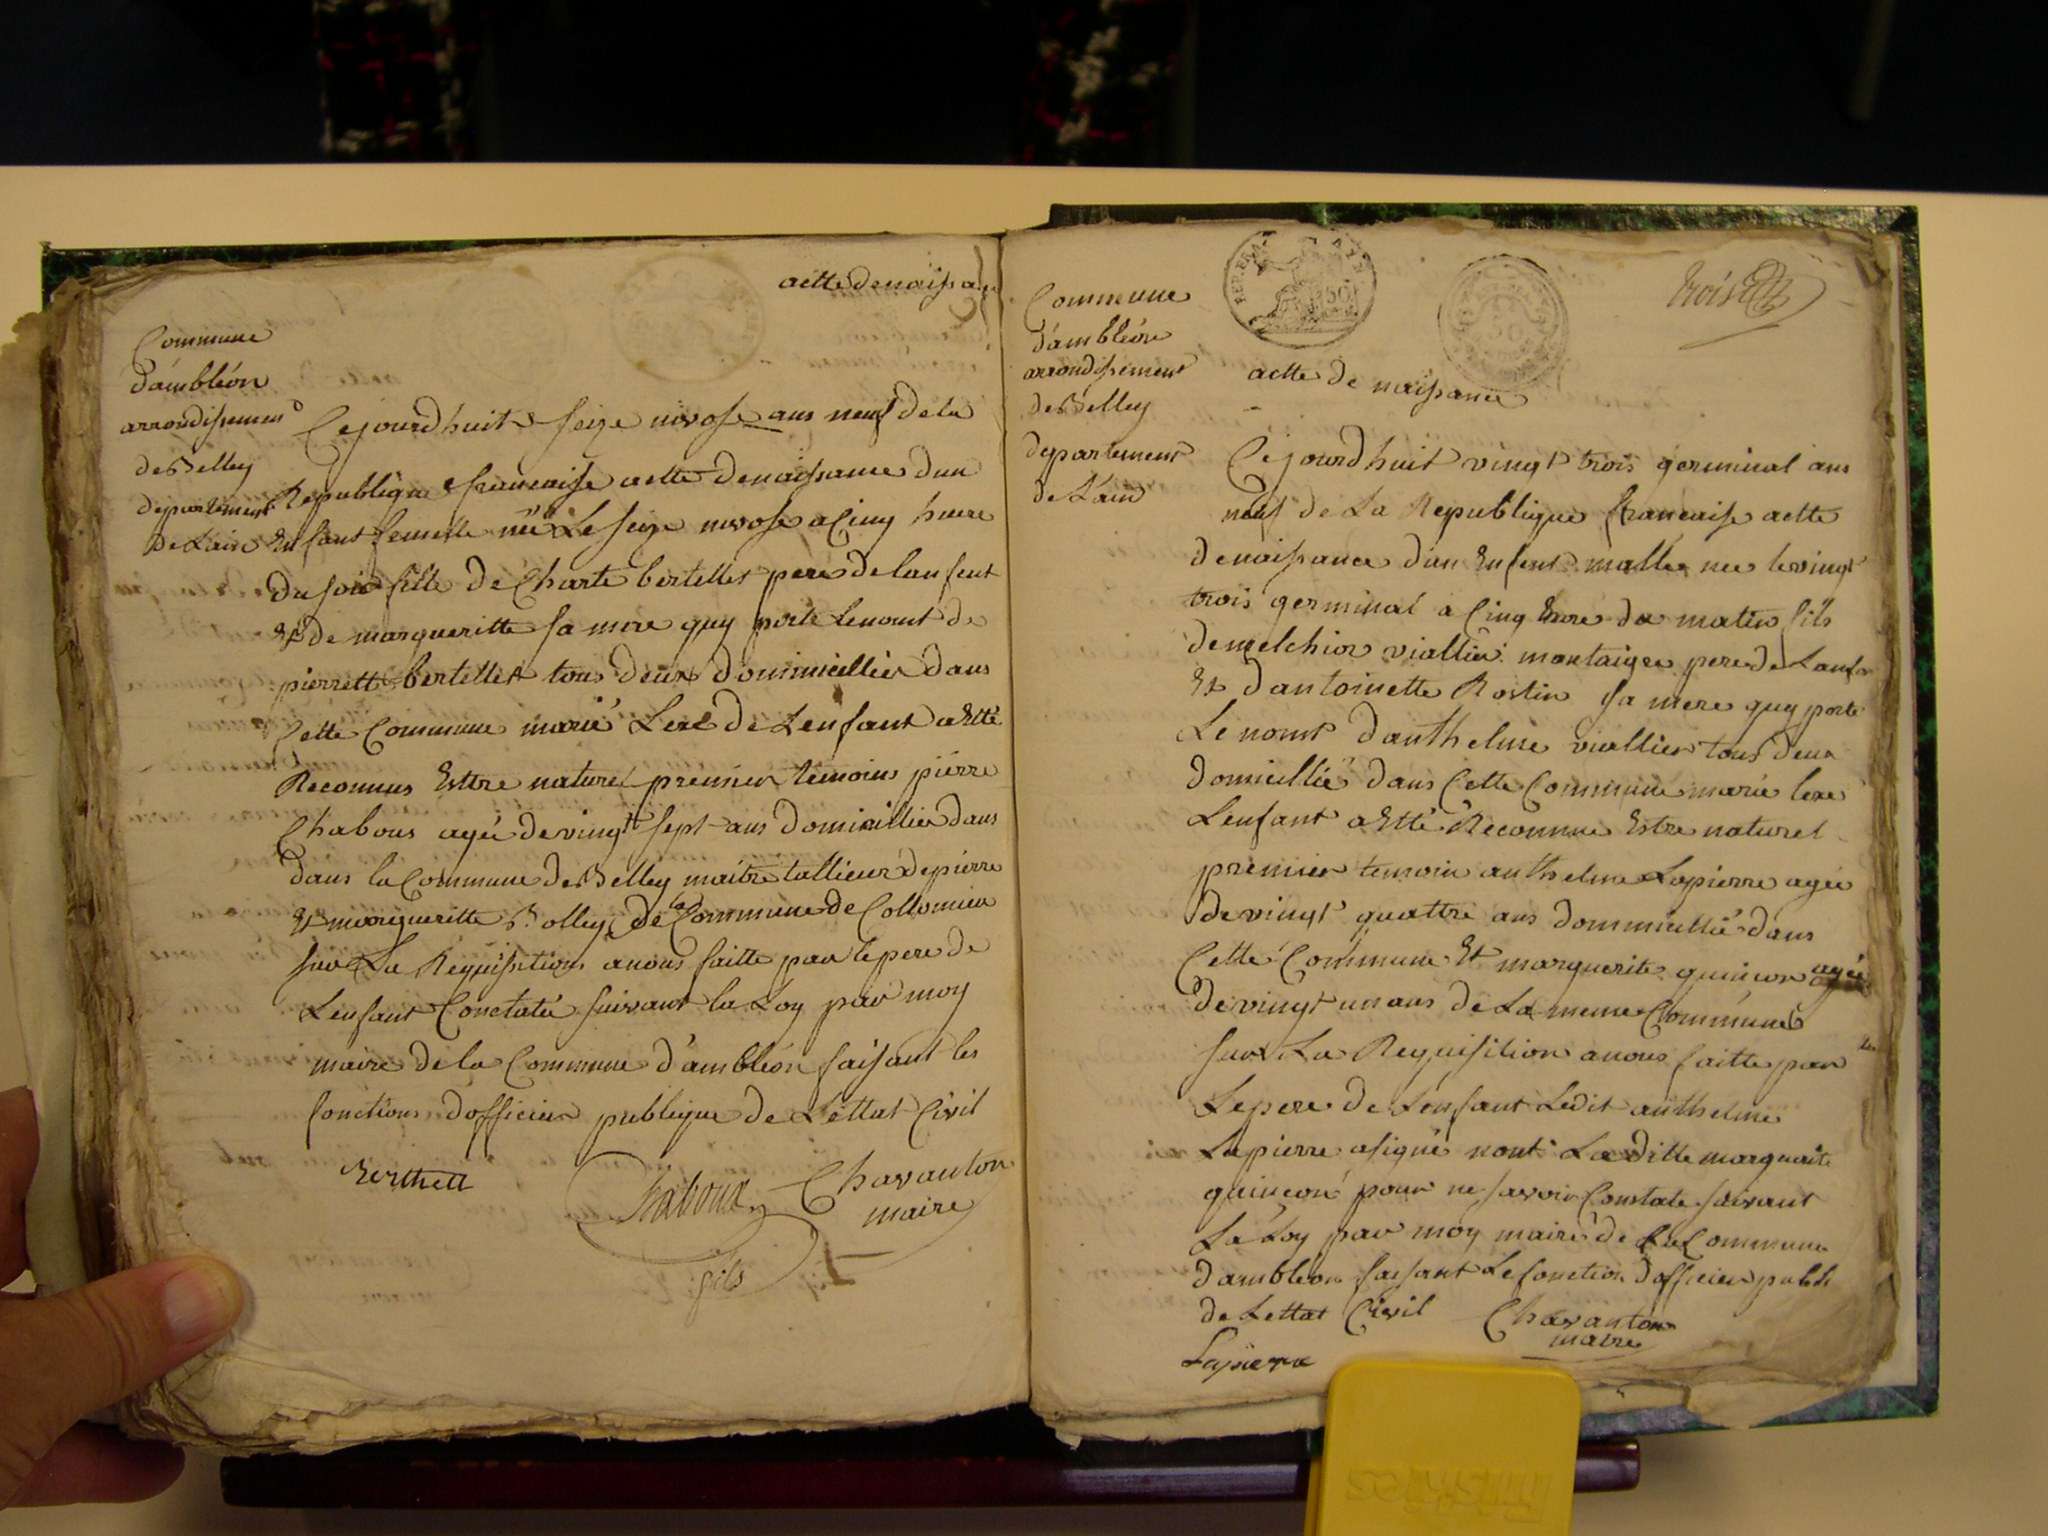 actte de naissan
Commune
d'ambléon
arrondissement
de Belley
departement
de Lain
Cejourdhuit seize nivose ans neuf de la
Republique francaise actte denaissance dun
Enfant femelle née Le seize nivose a Cinq hure
du soir fille de Charle bertellet pere de lanfent
Et de margueritte sa mere quy porte Lenomt de
pierrette bertellet tous deux dommicillier dans
Cette Commune marié Lexe de Lenfant a Etté
Reconnus Esttre naturel premier temoins pierre
Chabous agée de vingt sept ans domicillier dans
dans la Commune de Belley maitre tallieur de pierre
Et margueritte Bolley de la Commune de Collomieu
sur La Requisitions anous faitte par le pere de
Lenfant Conctatée suivant la Loy par moy
maire de la Commune d'ambléon faisant les
fonctions dofficier publique de Lettat Civil
Berthett
Chaboux
fils
Chavanton
maire
Commune
d'ambléon
arrondissement
de Belley
departement
de Lain
REP. FRA
50
50
trois
actte de naissance
Cejourdhuit vingt trois germinal ans
neuf de La Republique francaise actte
denaissance dun Enfent malle nee le vingt
trois germinal a Cinq hure du matin fils
de melchior viallier montaigre pere de Lanfa
Et dantoinette Rostin sa mere quy porte
Le nomt danthelme viallier tous deux
domicillié dans Cette Commune marié lexe
Lenfant a Etté Reconnue Estre naturel
premier temoin anthelme Lapierre agée
de vingt quattre ans dommicillié dans
Cette Commune Et marguerite quincon agée
de vingt un ans de La meme Commune
sur La Requisition anous faitte par
Le pere de Lenfant Ledit anthelme
Lapierre asigné nont La ditte marguerite
quincon pour ne savoir Constate suivant
La Loy par moy maire de La Commune
dambléon faisant Le fonction dofficier publi
de Lettat Civil
Chavanton
maire
Lapierre